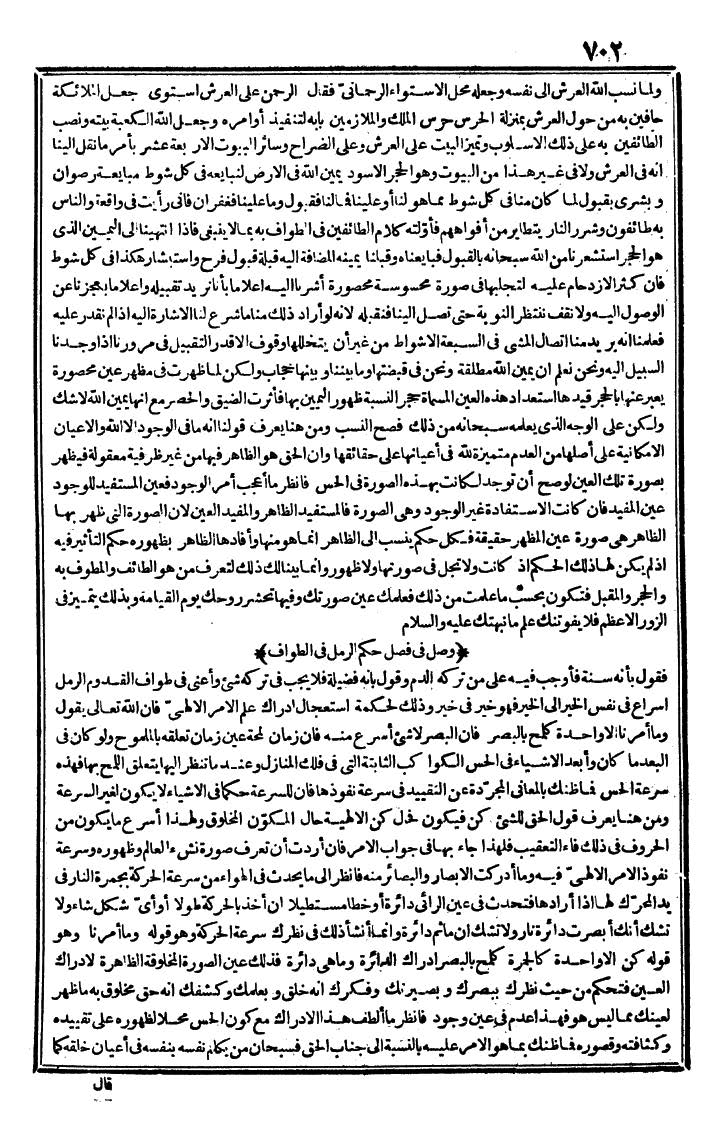 ٧٠٢
ولما نسب الله العرش الى نفسه وجعله محل الاستواء الرحمانىّ فقال الرحمن على العرش استوى جعل الملائكة
حافين به من حول العرش بمنزلة الحرس حرس الملك والملازمين بابه لتنفيذ أوامره وجعل الله الكعبة بيته ونصب
الطائفين به على ذلك الاسلوب وتميز البيت على العرش وعلى الضراح وسائر البيوت الاربعة عشر بأمر ما نقل الينا
انه فى العرش ولا فى غير هذا من البيوت وهو الحجر الاسود يمين الله فى الارض لنبايعه فى كل شوط مبايعة رضوان
وبشرى بقبول لما كان منا فى كل شوط مما هو لنا أو علينا فما لنا فقبول وما علينا فغفران فانى رأيت فى واقعة والناس
به طائفون وشرر النار يتطاير من أفواههم فأوّلته كلام الطائفين فى الطواف به بما لا ينبغى فاذا انتهينا الى اليمين الذى
هو الحجر استشعرنا من الله سبحانه بالقبول فبايعناه وقبلنا يمينه المضافة اليه قبلة قبول فرح واستبشار هكذا فى كل شوط
فان كثر الازدحام عليه لتجليها فى صورة محسوسة محصورة أشرنا اليه اعلاما بأنا نريد تقبيله واعلاما بعجزنا عن
الوصول اليه ولا نقف ننتظر النوبة حتى تصل الينا فنقبله لانه لو أراد ذلك منا ما شرع لنا الاشارة اليه اذا لم نقدر عليه
فعلمنا انه يريد منا اتصال المشى فى السبعة الاشواط من غير أن يتخللها وقوف الا قدر التقبيل فى مرورنا اذا وجدنا
السبيل اليه ونحن نعلم ان يمين الله مطلقة ونحن فى قبضتها وما بيننا وبينها حجاب ولكن لما ظهرت فى مظهر عين محصورة
يعبر عنها بالحجر قيدها استعداد هذه العين المسماة حجر النسبة ظهور اليمين بها فأثرت الضيق والحصر مع انها يمين الله لاشك
ولكن على الوجه الذى يعلمه سبحانه من ذلك فصح النسب ومن هنا يعرف قولنا انه ما فى الوجود الا الله والاعيان
الامكانية على أصلها من العدم متميزة لله فى أعيانها على حقائقها وان الحق هو الظاهر فيها من غير ظرفية معقولة فيظهر
بصورة تلك العين لو صح أن توجد لكانت بهذه الصورة فى الحس فانظر ما أعجب أمر الوجود فعين المستفيد للوجود
عين المفيد فان كانت الاستفادة غير الوجود وهى الصورة فالمستفيد الظاهر والمفيد العين لان الصورة التى ظهر بها
الظاهر هى صورة عين المظهر حقيقة فكل حكم ينسب الى الظاهر انما هو منها وأفادها الظاهر بظهوره حكم التأثير فيه
اذ لم يكن لها ذلك الحكم اذ كانت ولا تجل فى صورتها ولا ظهور وانما بينا لك ذلك لتعرف من هو الطائف والمطوف به
والحجر والمقبل فتكون بحسب ما علمت من ذلك فعلمك عين صورتك وفيها تحشر روحك يوم القيامة وبذلك يتميز فى
الزور الاعظم فلا يفوتنك علم ما نبهتك عليه والسلام
﴿وصل فى فصل حكم الرمل فى الطواف﴾
فقول بأنه سنة فأوجب فيه على من تركه الدم وقول بأنه فضيلة فلا يجب فى تركه شئ وأعنى فى طواف القدوم الرمل
اسراع فى نفس الخير الى الخير فهو خير فى خير وذلك لحكمة استعجال ادراك علم الامر الالهىّ فان الله تعالى يقول
وما أمرنا الا واحدة كلمح بالبصر فان البصر لا شئ أسرع منه فان زمان لمحة عين زمان تعلقه بالملموح ولو كان فى
البعد ما كان وأبعد الاشياء فى الحس الكواكب الثابتة التى فى فلك المنازل وعند ما تنظر اليها يتعلق اللمح بها فهذه
سرعة الحس فما ظنك بالمعانى المجرّدة عن التقييد فى سرعة نفوذها فان للسرعة حكما فى الاشياء لا يكون لغير السرعة
ومن هنا يعرف قول الحق للشئ كن فيكون فحال كن الالهية حال المكوّن المخلوق ولهذا أسرع ما يكون من
الحروف فى ذلك فاء التعقيب فلهذا جاء بها فى جواب الامر فان أردت أن تعرف صورة نشء العالم وظهوره وسرعة
نفوذ الامر الالهىّ فيه وما أدركت الابصار والبصائر منه فانظر الى ما يحدث فى الهواء من سرعة الحركة بجمرة النار فى
يد المحرّك لها اذا أرادها فتحدث فى عين الرائى دائرة أو خطا مستطيلا ان أخذ بالحركة طولا أو أىّ شكل شاء ولا
تشك أنك أبصرت دائرة نار ولا تشك ان ما ثم دائرة وانما أنشأ ذلك فى نظرك سرعة الحركة وهو قوله وما أمرنا وهو
قوله كن الا واحدة كالجرة كلمح بالبصر ادراك الدائرة وما هى دائرة فذلك عين الصورة المخلوقة الظاهرة لادراك
العين فتحكم من حيث نظرك ببصرك وبصيرتك وفكرك انه خلق وبعلمك وكشفك انه حق مخلوق به ما ظهر
لعينك مما ليس هو فهذا عدم فى عين وجود فانظر ما ألطف هذا الادراك مع كون الحس محلا لظهوره على تقييده
وكثافته وقصوره فما ظنك بما هو الامر عليه بالنسبة الى جناب الحق فسبحان من يكلم نفسه بنفسه فى أعيان خلقه كما
قال